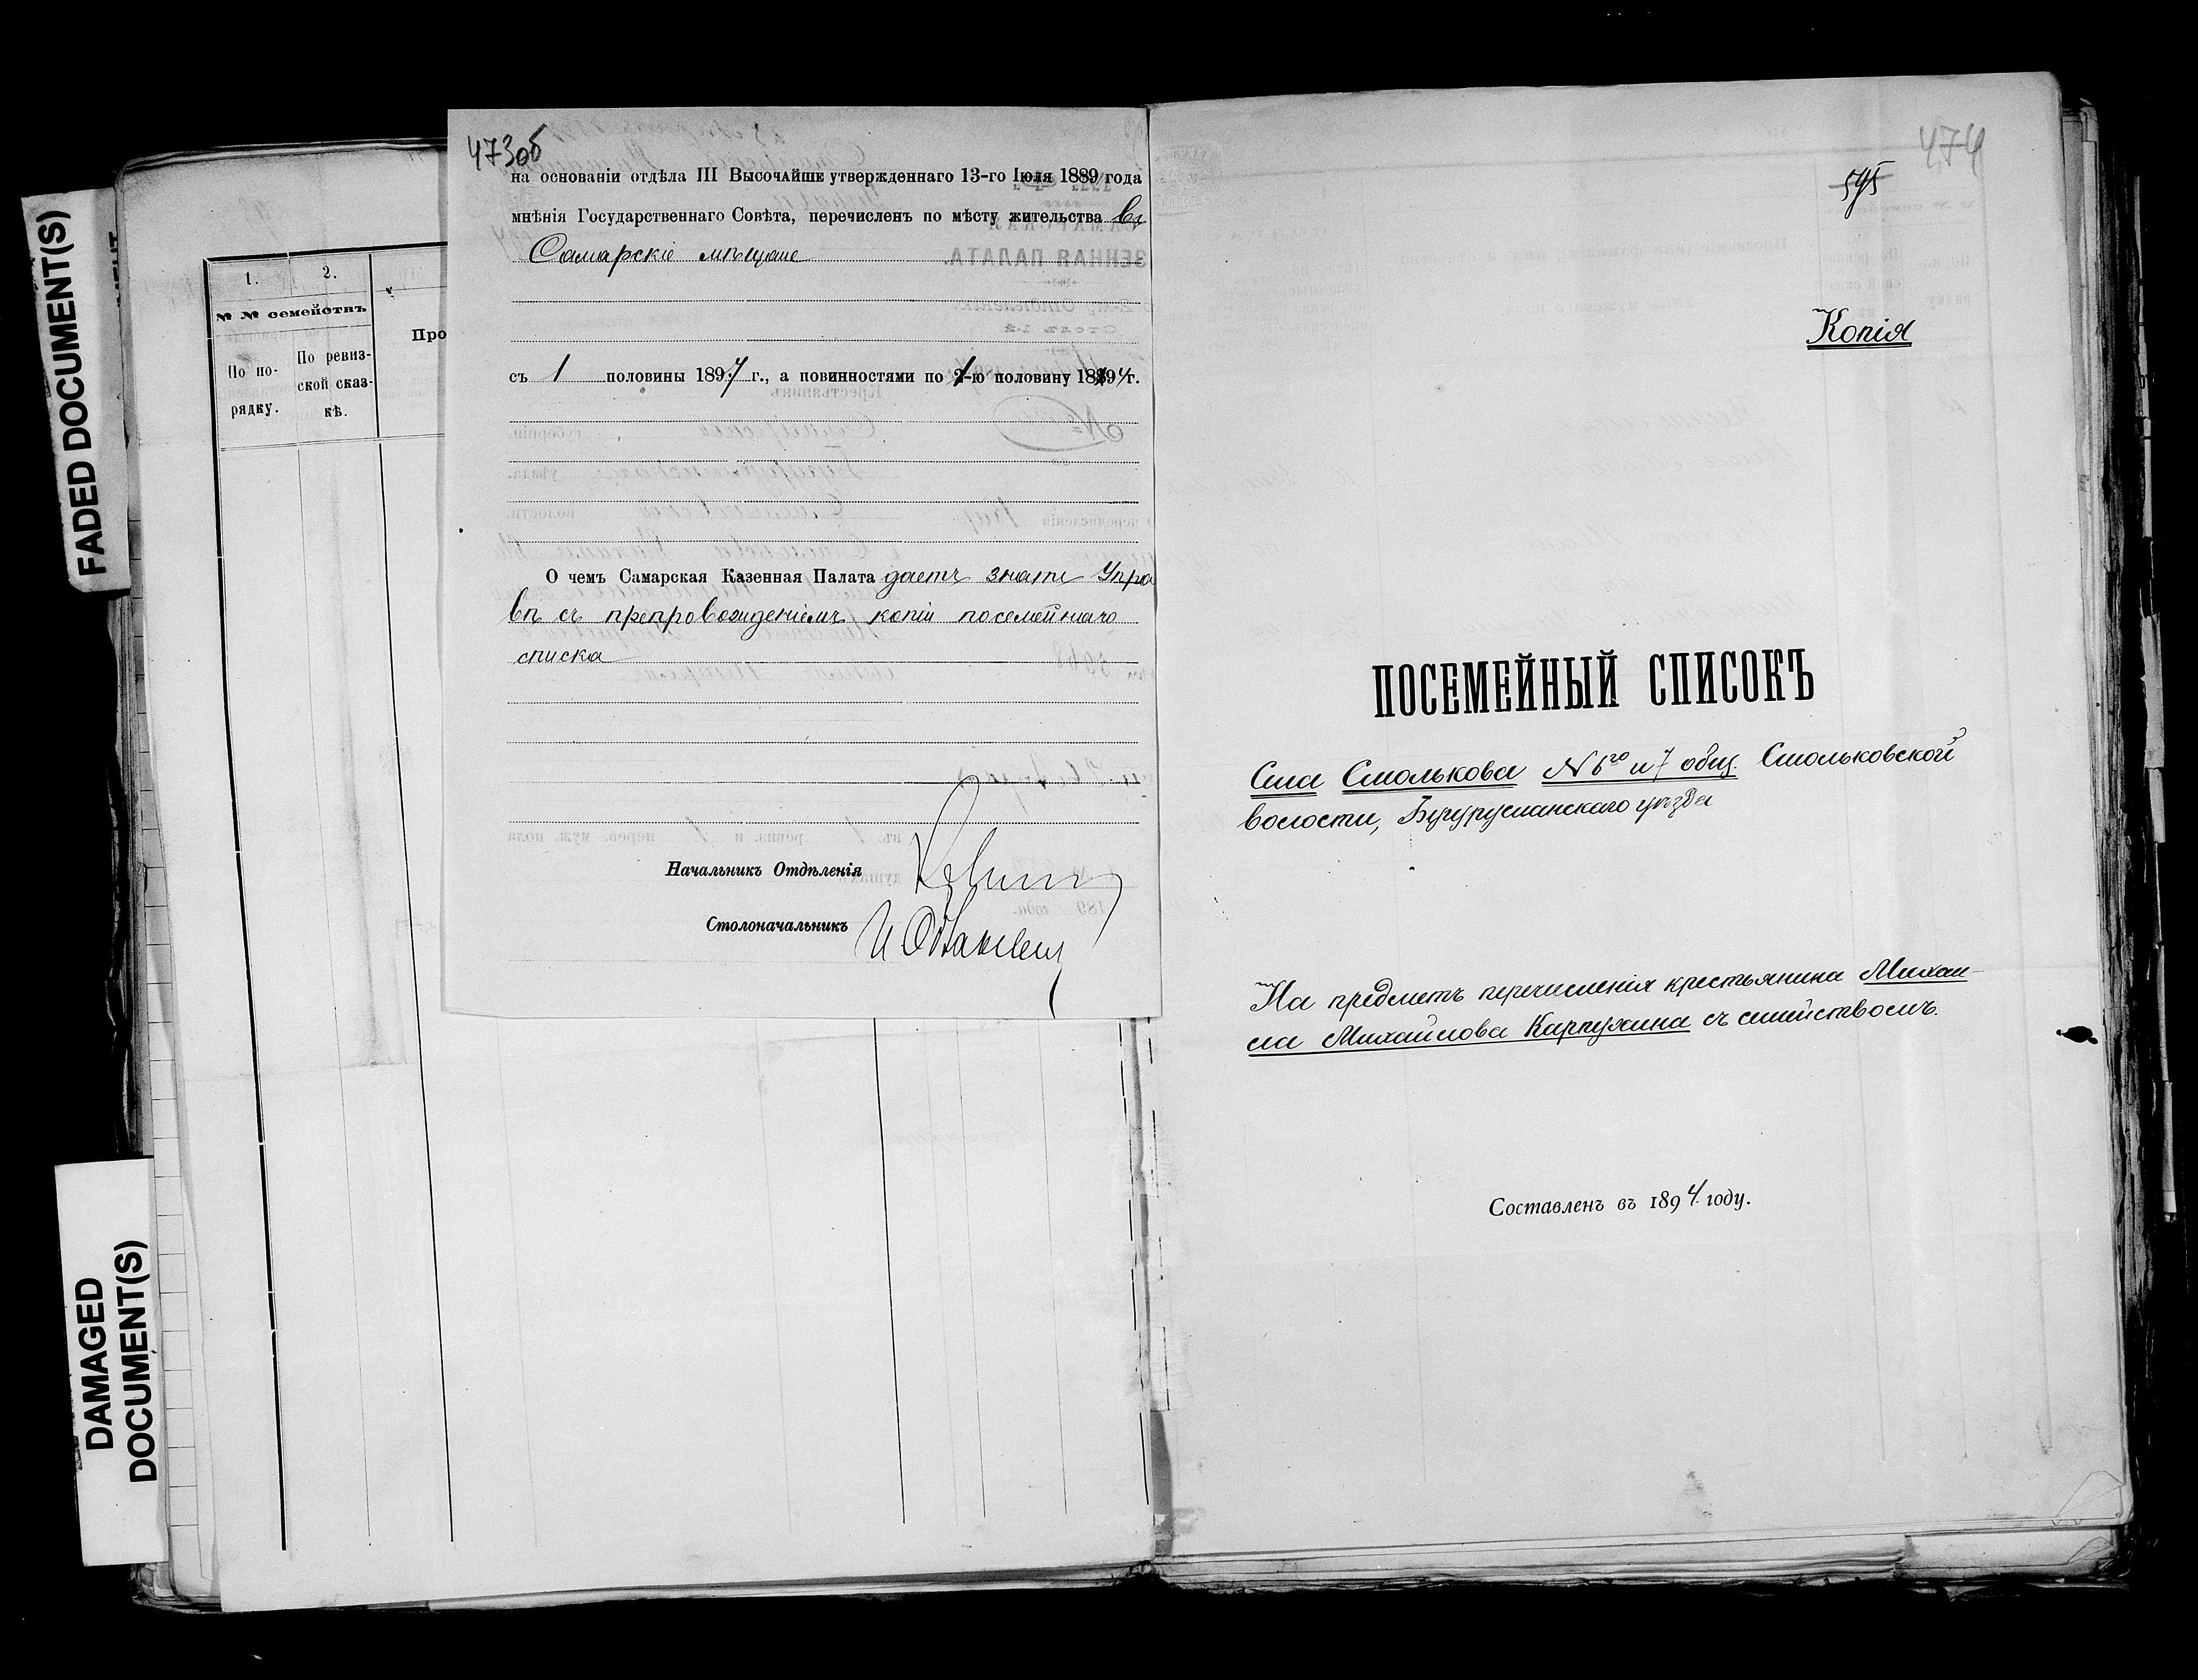 FADED DOCUMENT(S)
DAMAGED
DOCUMENT(S)
1. 2.
№ № семействъ
Про
По по-
рядку.
По ревиз-
ской сказ-
кѣ.
473об
на основаніи отдѣла III Высочайше утвержденнаго 13-го Іюля 1889 года
мнѣнія Государственнаго Совѣта, перечисленъ по мѣсту жительства въ
Самарскіе мѣщане
съ 1 половины 1894 г., а повинностями по 1-ю половину 1894 г.
О чемъ Самарская Казенная Палата даетъ знать Упра
вѣ съ препровожденіемъ копіи посемейнаго
списка
Начальникъ Отдѣленія
Столоначальникъ
474
595
Копія
ПОСЕМЕЙНЫЙ СПИСОКЪ
Села Смолькова № 6го и 7 общ. Смольковской
волости, Бугурусланскаго уѣзда
На предметъ перечисленія крестьянина Михаи-
ла Михайлова Карпухина съ семействомъ.
Составленъ въ 1894 году.